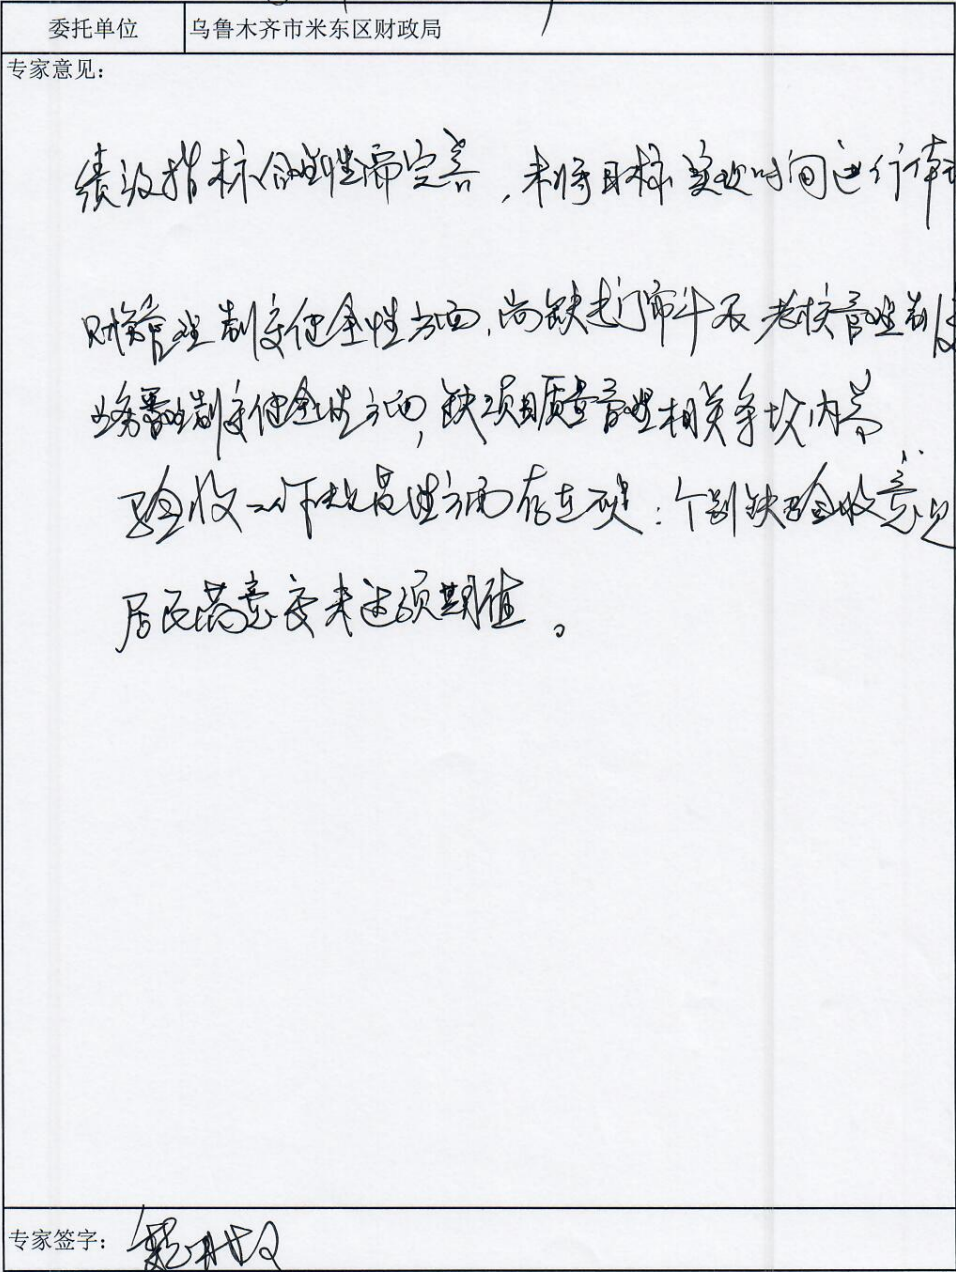 委托单位 乌鲁木齐市米东区财政局
专家意见：
绩效指标合理性需完善，未将目标实现时间进行体现
财务管理制度健全性方面，尚缺专门审计及考核管理制度
业务管理制度健全性方面，缺项目质量管理相关条款内容
验收规范性方面存在瑕疵：个别缺验收意见
居民满意度未达预期值。
专家签字：